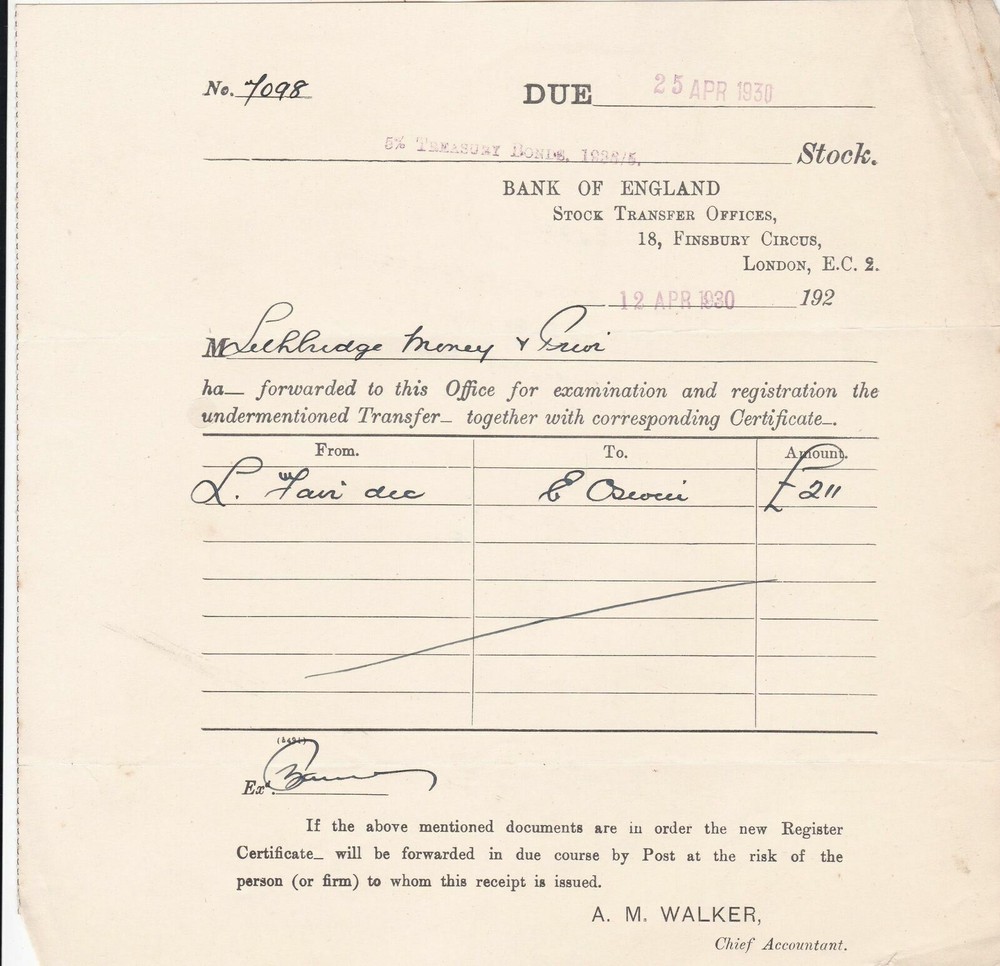 No. 7098
DUE 25 APR 1930
5% TREASURY BONDS, Stock.
BANK OF ENGLAND
STOCK TRANSFER OFFICES,
18, FINSBURY CIRCUS,
LONDON, E.C. 2.
12 APR 1930 192
M Lethbridge Money & Prior
ha_ forwarded to this Office for examination and registration the
undermentioned Transfer_ together with corresponding Certificate_.
From. To. Amount.
L. dec E £211
Exd.
If the above mentioned documents are in order the new Register
Certificate_ will be forwarded in due course by Post at the risk of the
person (or firm) to whom this receipt is issued.
A. M. WALKER,
Chief Accountant.